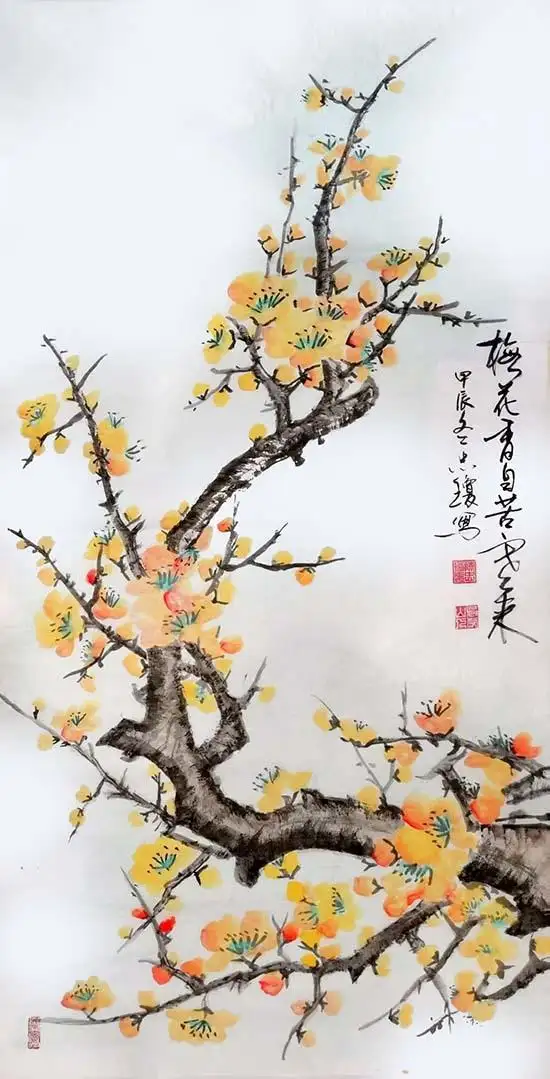 梅花香自苦寒来
甲辰冬志琼写